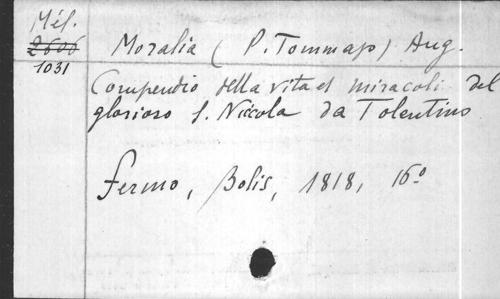 Mél.
2606
1031
Moralia (P. Tommaso) Aug.
Compendio della vita et miracoli del
glorioso S. Niccola da Tolentino
Fermo, Bolis, 1818, 16º